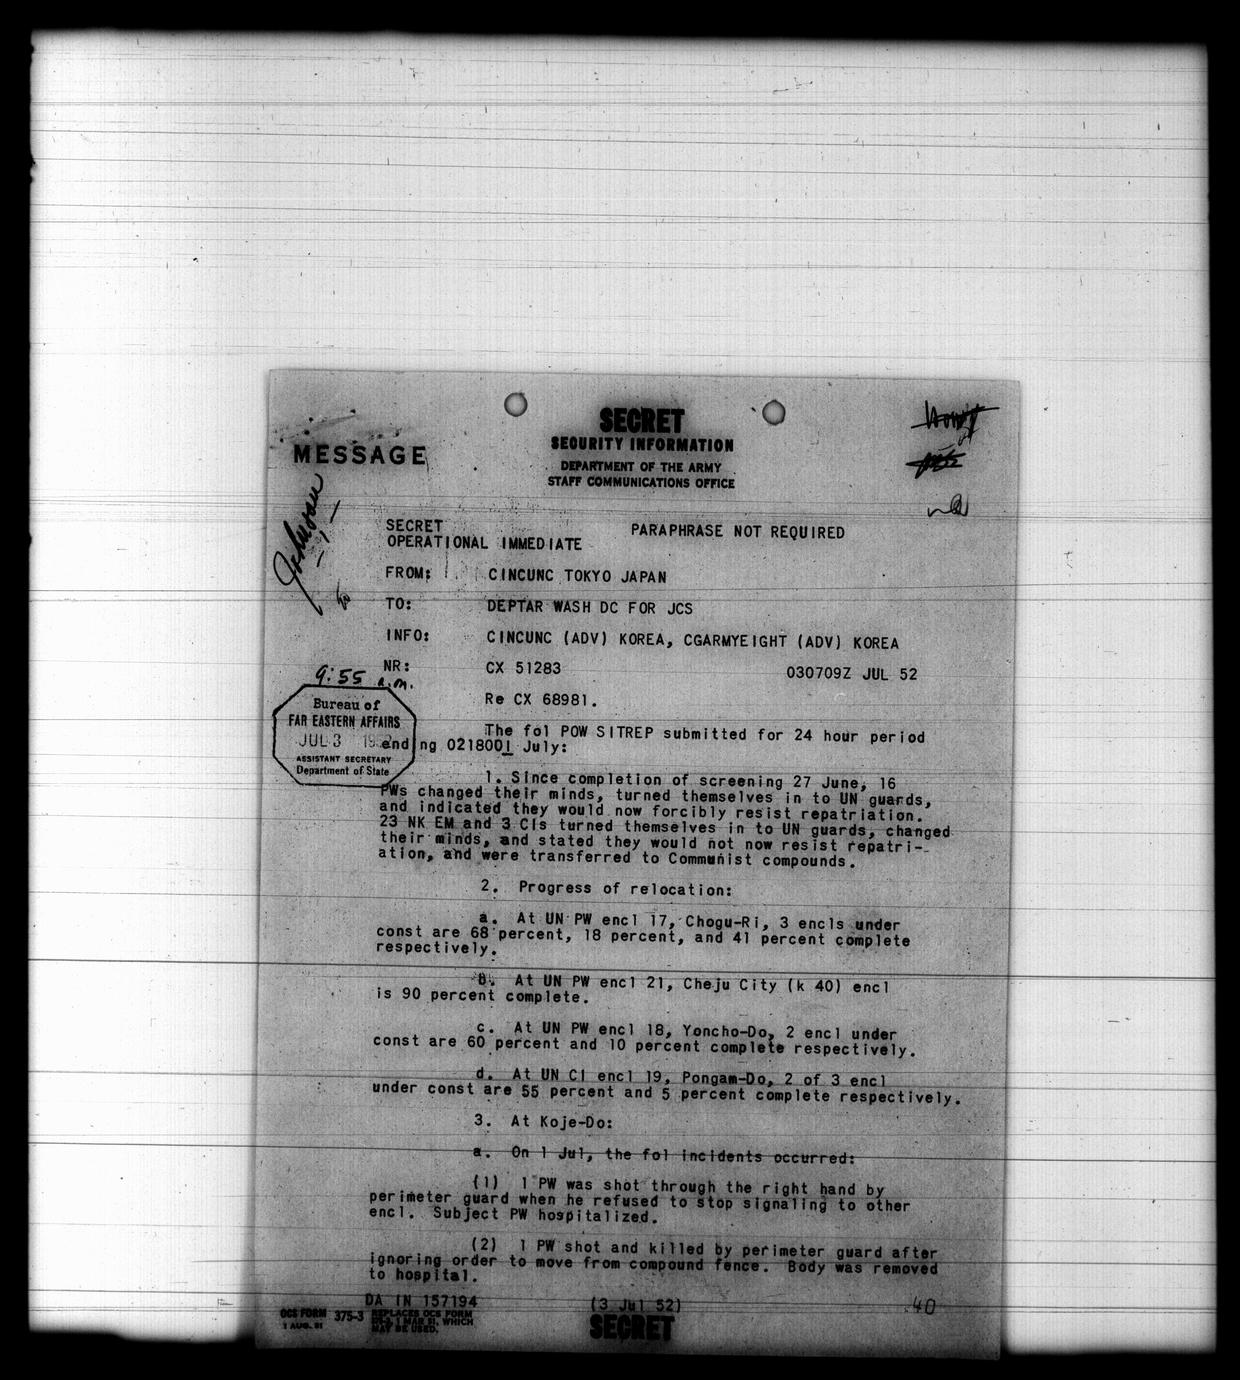 SECRET
SECURITY INFORMATION
MESSAGE
DEPARTMENT OF THE ARMY
STAFF COMMUNICATIONS OFFICE
Johnson
SECRET PARAPHRASE NOT REQUIRED
OPERATIONAL IMMEDIATE
FROM: CINCUNC TOKYO JAPAN
TO: DEPTAR WASH DC FOR JCS
INFO: CINCUNC (ADV) KOREA, CGARMYEIGHT (ADV) KOREA
NR: CX 51283 030709Z JUL 52
9:55 a.m.
Re CX 68981.
Bureau of
FAR EASTERN AFFAIRS
JUL 3
ASSISTANT SECRETARY
Department of State
The fol POW SITREP submitted for 24 hour period
ending 021800I July:
1. Since completion of screening 27 June, 16
PWs changed their minds, turned themselves in to UN guards,
and indicated they would now forcibly resist repatriation.
23 NK EM and 3 CIs turned themselves in to UN guards, changed
their minds, and stated they would not now resist repatri-
ation, and were transferred to Communist compounds.
2. Progress of relocation:
a. At UN PW encl 17, Chogu-Ri, 3 encls under
const are 68 percent, 18 percent, and 41 percent complete
respectively.
B. At UN PW encl 21, Cheju City (k 40) encl
is 90 percent complete.
c. At UN PW encl 18, Yoncho-Do, 2 encl under
const are 60 percent and 10 percent complete respectively.
d. At UN CI encl 19, Pongam-Do, 2 of 3 encl
under const are 55 percent and 5 percent complete respectively.
3. At Koje-Do:
a. On 1 Jul, the fol incidents occurred:
(1) 1 PW was shot through the right hand by
perimeter guard when he refused to stop signaling to other
encl. Subject PW hospitalized.
(2) 1 PW shot and killed by perimeter guard after
ignoring order to move from compound fence. Body was removed
to hospital.
DA IN 157194 (3 Jul 52) 40
OCS FORM 375-3 REPLACES OCS FORM
1 AUG. 51 375-3, 1 MAR 51, WHICH
MAY BE USED.
SECRET